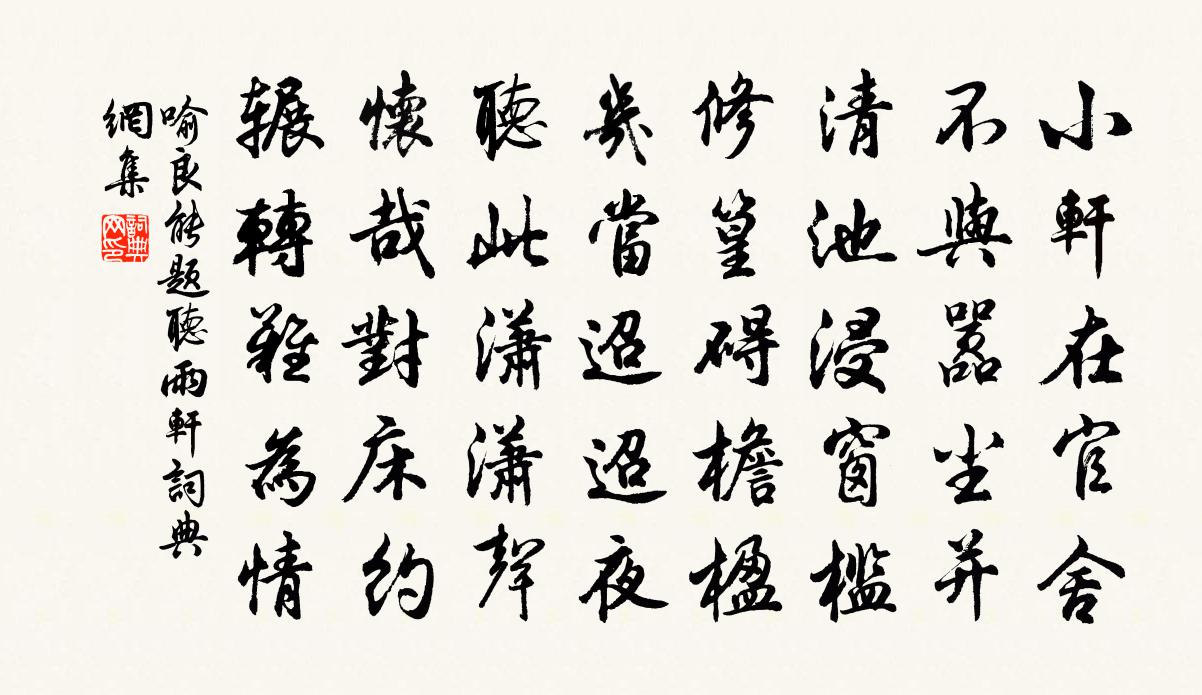 小軒在官舍
不與嚣尘并
清池浸窗檻
修篁碍檐楹
幾當迢迢夜
聽此潇潇聲
懷哉對床約
辗轉難為情
喻良能題聽雨軒詞典
網集
詞典網印